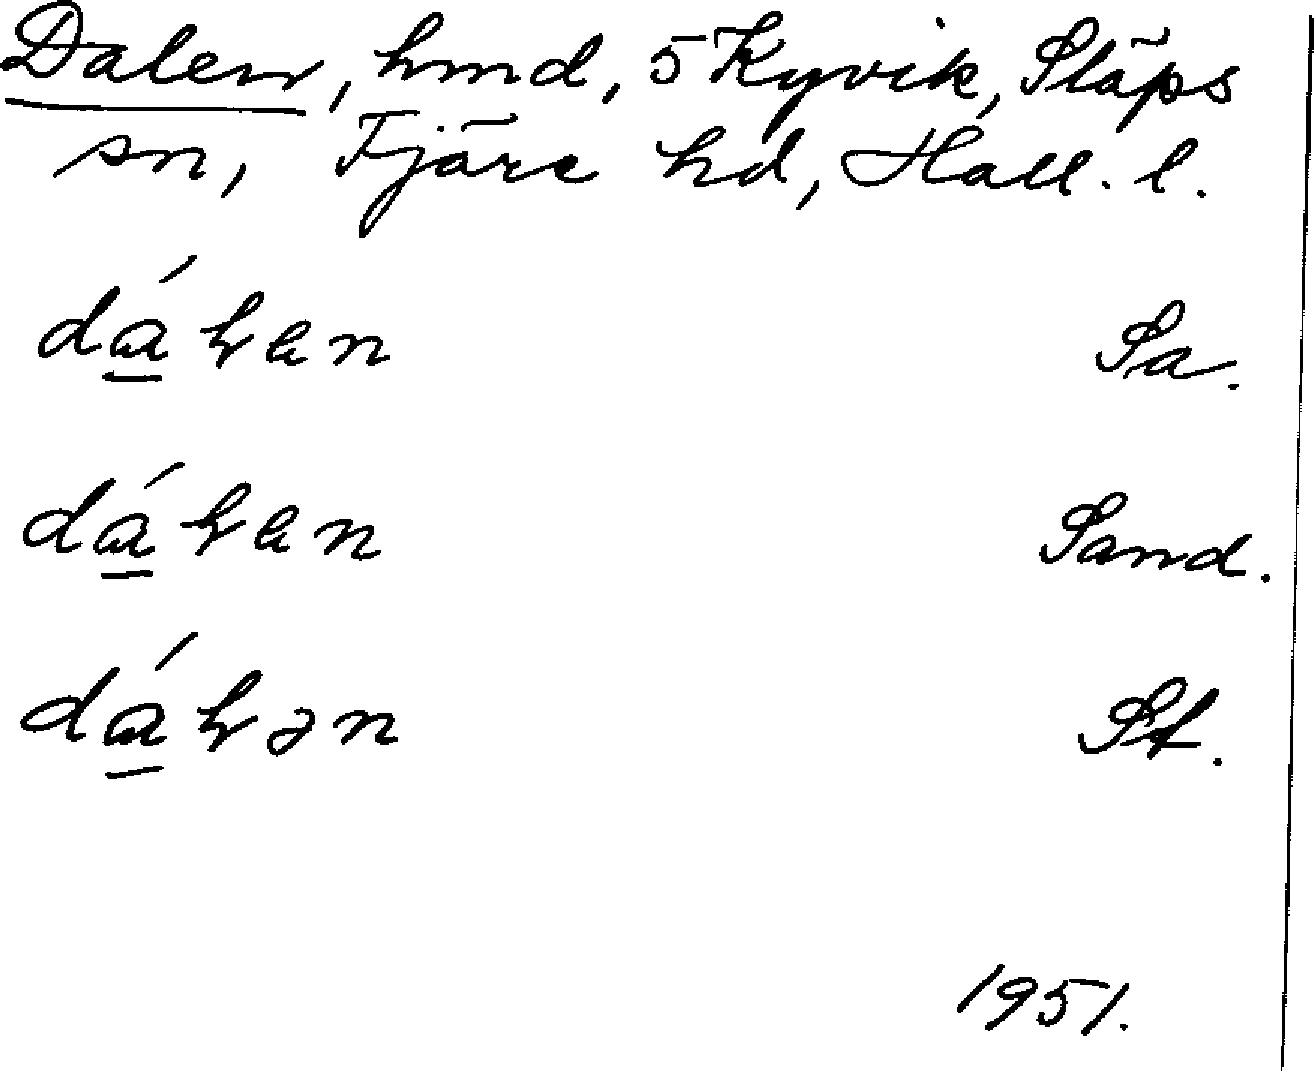 Dalen, hmd, 5 Kyvik, Släps
sn, Fjäre hd, Hall. l.
dá̱ꞎen Sa.
dá̱ꞎen Sand.
dá̱ꞎən St.
1951.